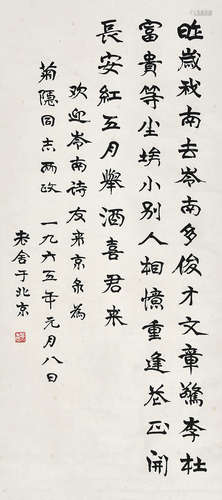 昨歲我南去岺南多俊才文章驚李杜
富貴等尘埃小别人相憶重逢花正開
長安紅五月舉酒喜君来
欢迎岺南诗友来京录為
菊隱同志两政 一九六五年元月八日
老舍于北京